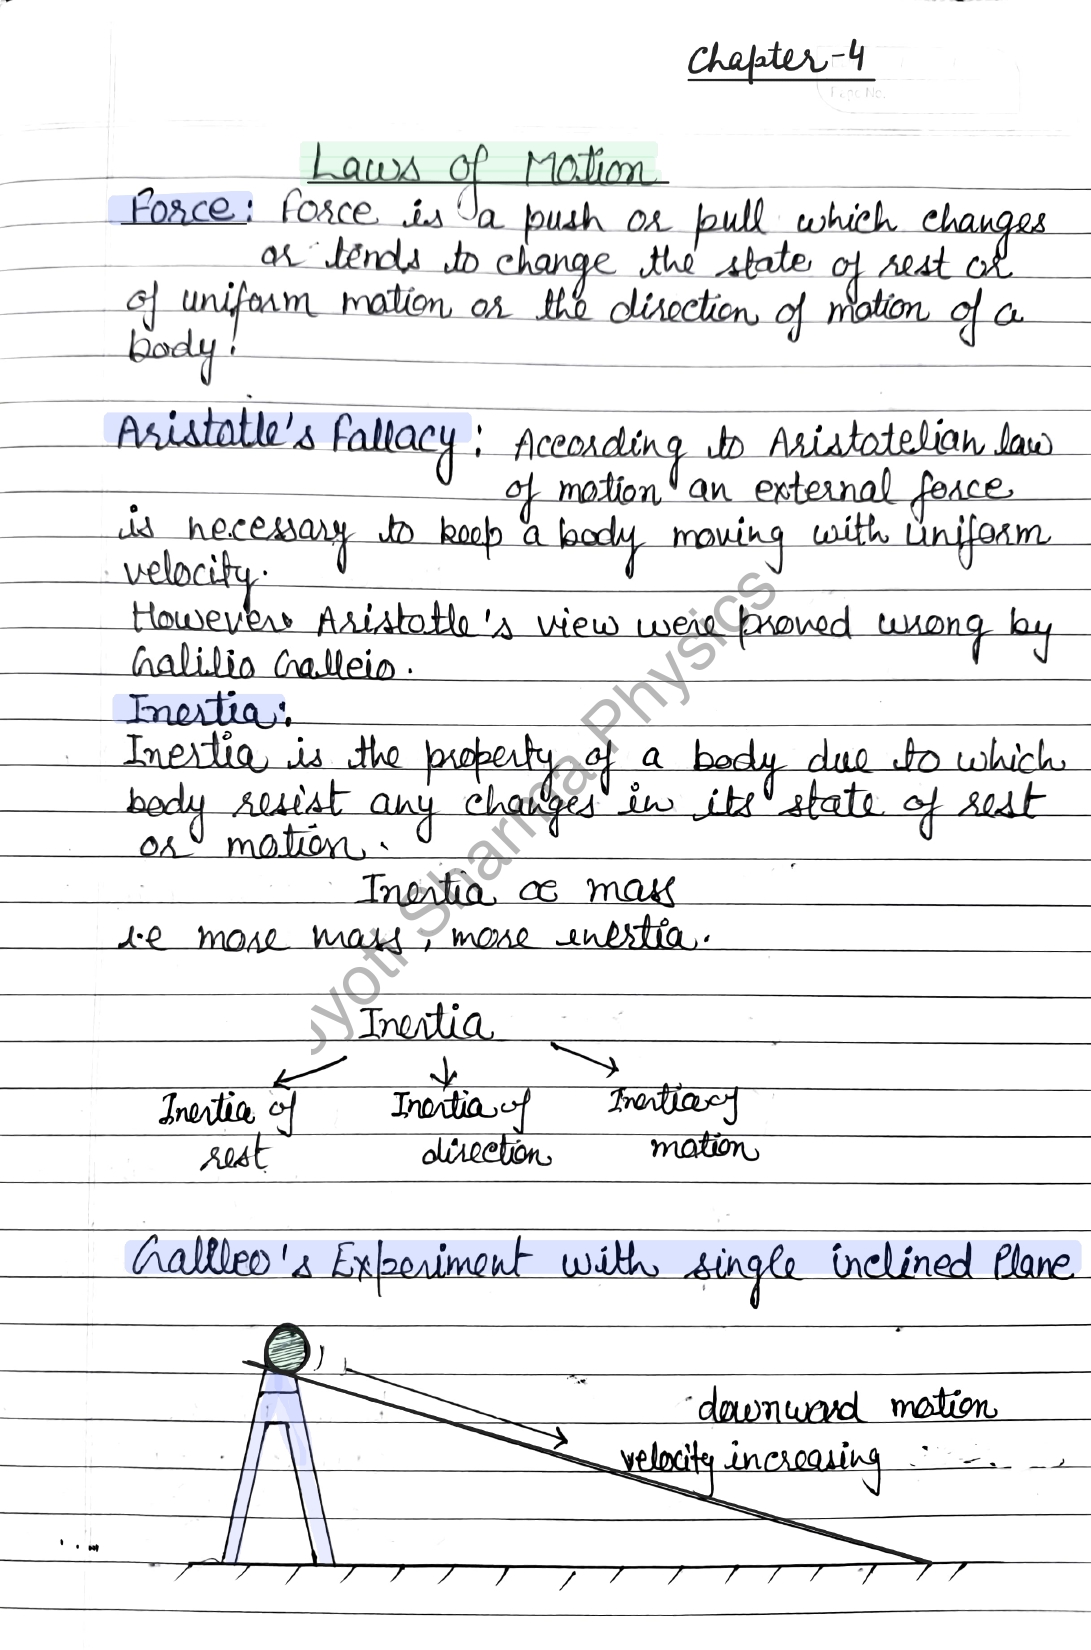 Chapter-4
Page No.
Laws of Motion
Force: Force is a push or pull which changes
or tends to change the state of rest or
of uniform motion or the direction of motion of a
body.
Aristotle's Fallacy: According to Aristotelian law
of motion an external force
is necessary to keep a body moving with uniform
velocity.
However Aristotle's view were proved wrong by
Galilio Galleio.
Inertia:
Inertia is the property of a body due to which
body resist any changes in its state of rest
or motion.
Inertia ∝ mass
i.e more mass, more inertia.
Inertia
Inertia of rest
Inertia of direction
Inertia of motion
Galileo's Experiment with single inclined Plane
downward motion
velocity increasing
Jyoti Sharma Physics